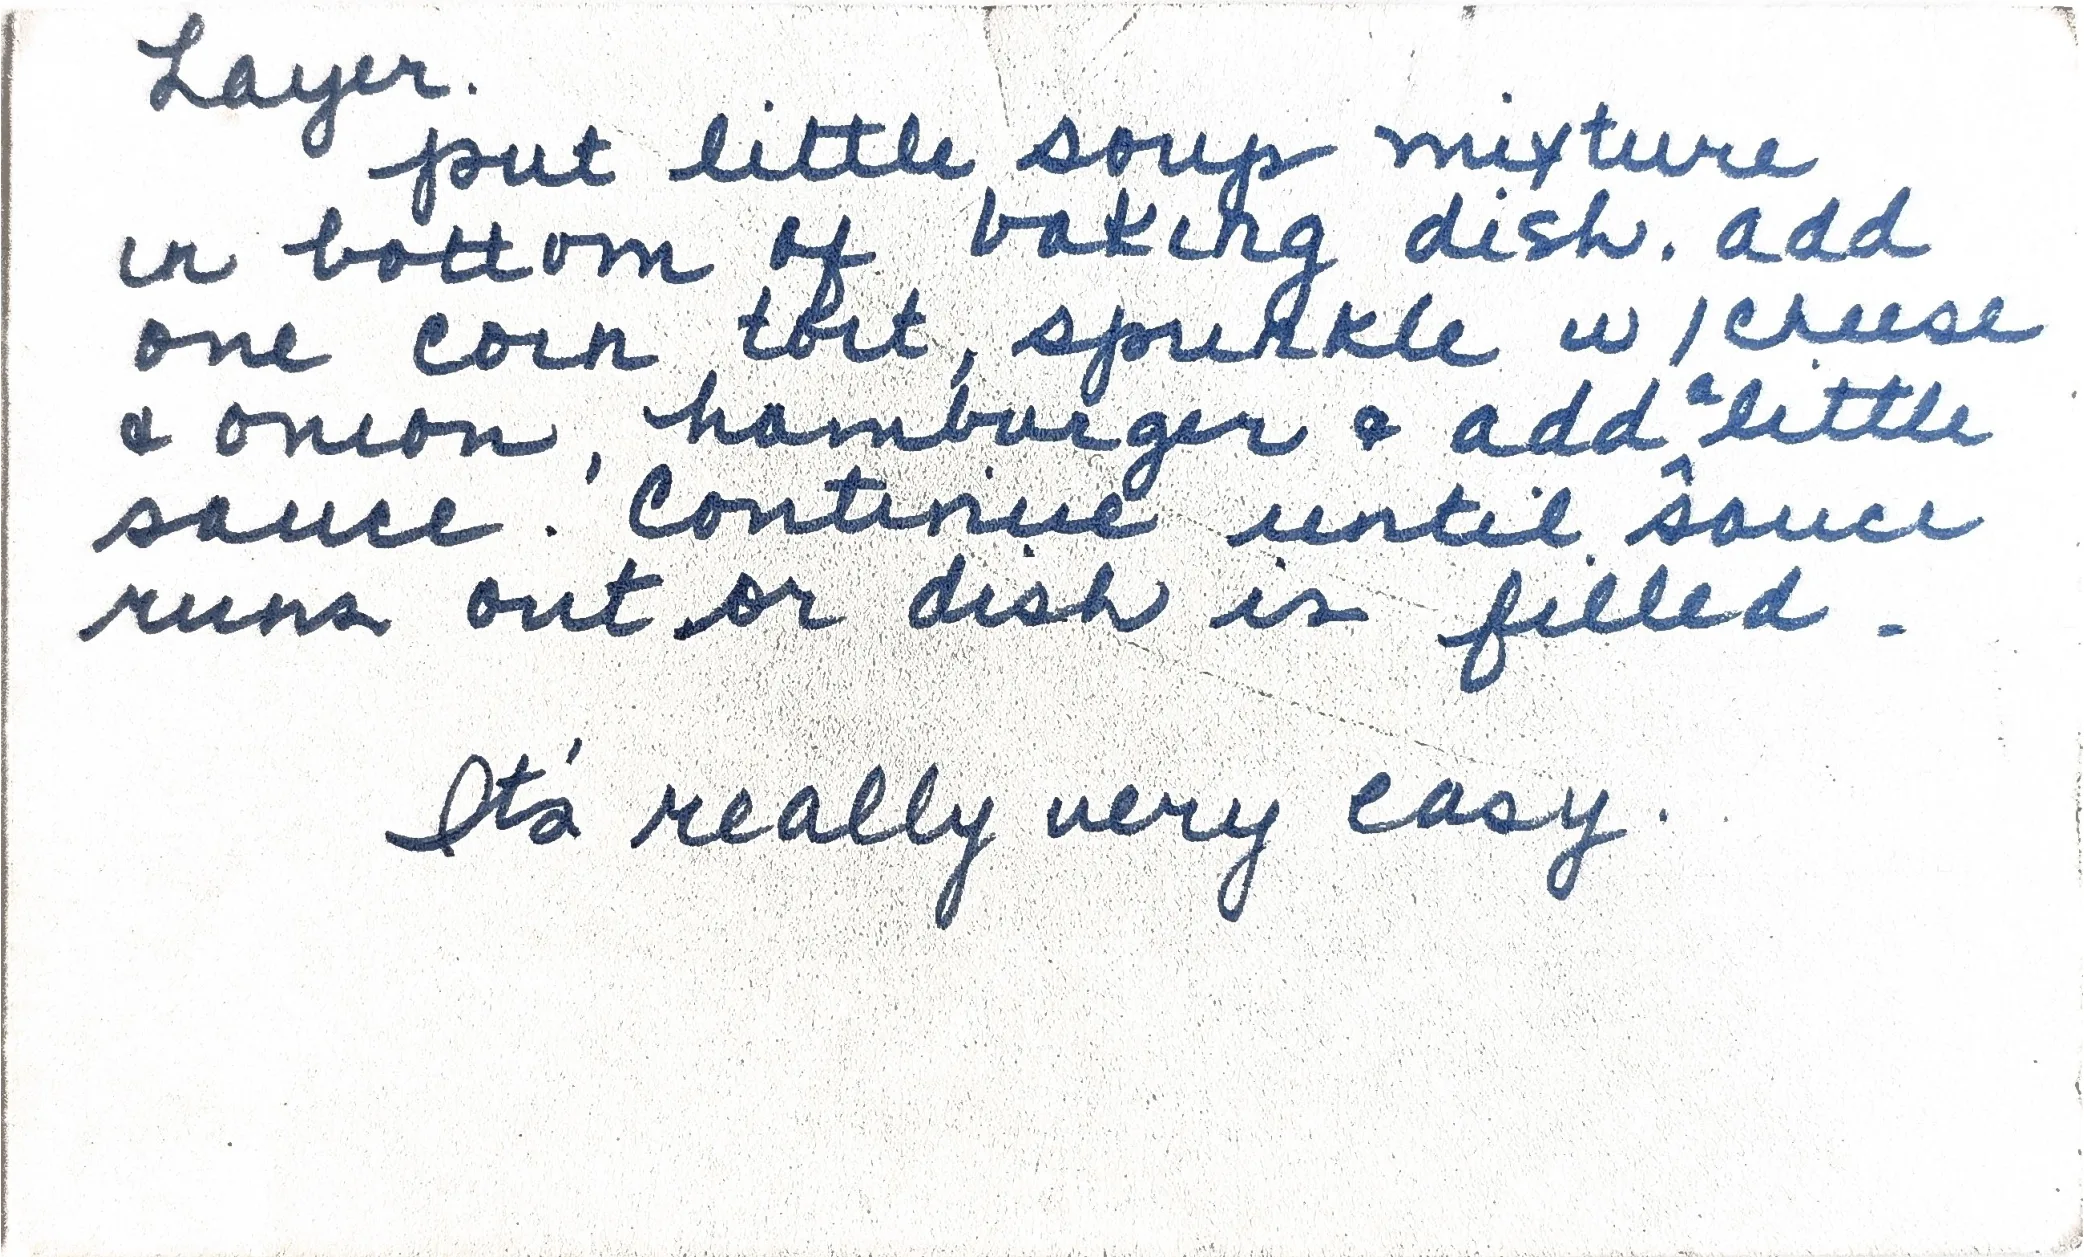 Layer.
put little soup mixture
in bottom of baking dish. add
one corn tort, sprinkle w/cheese
& onion, hamburger & add ^a little
sauce. Continue until sauce
runs out or dish is filled.
It's really very easy.